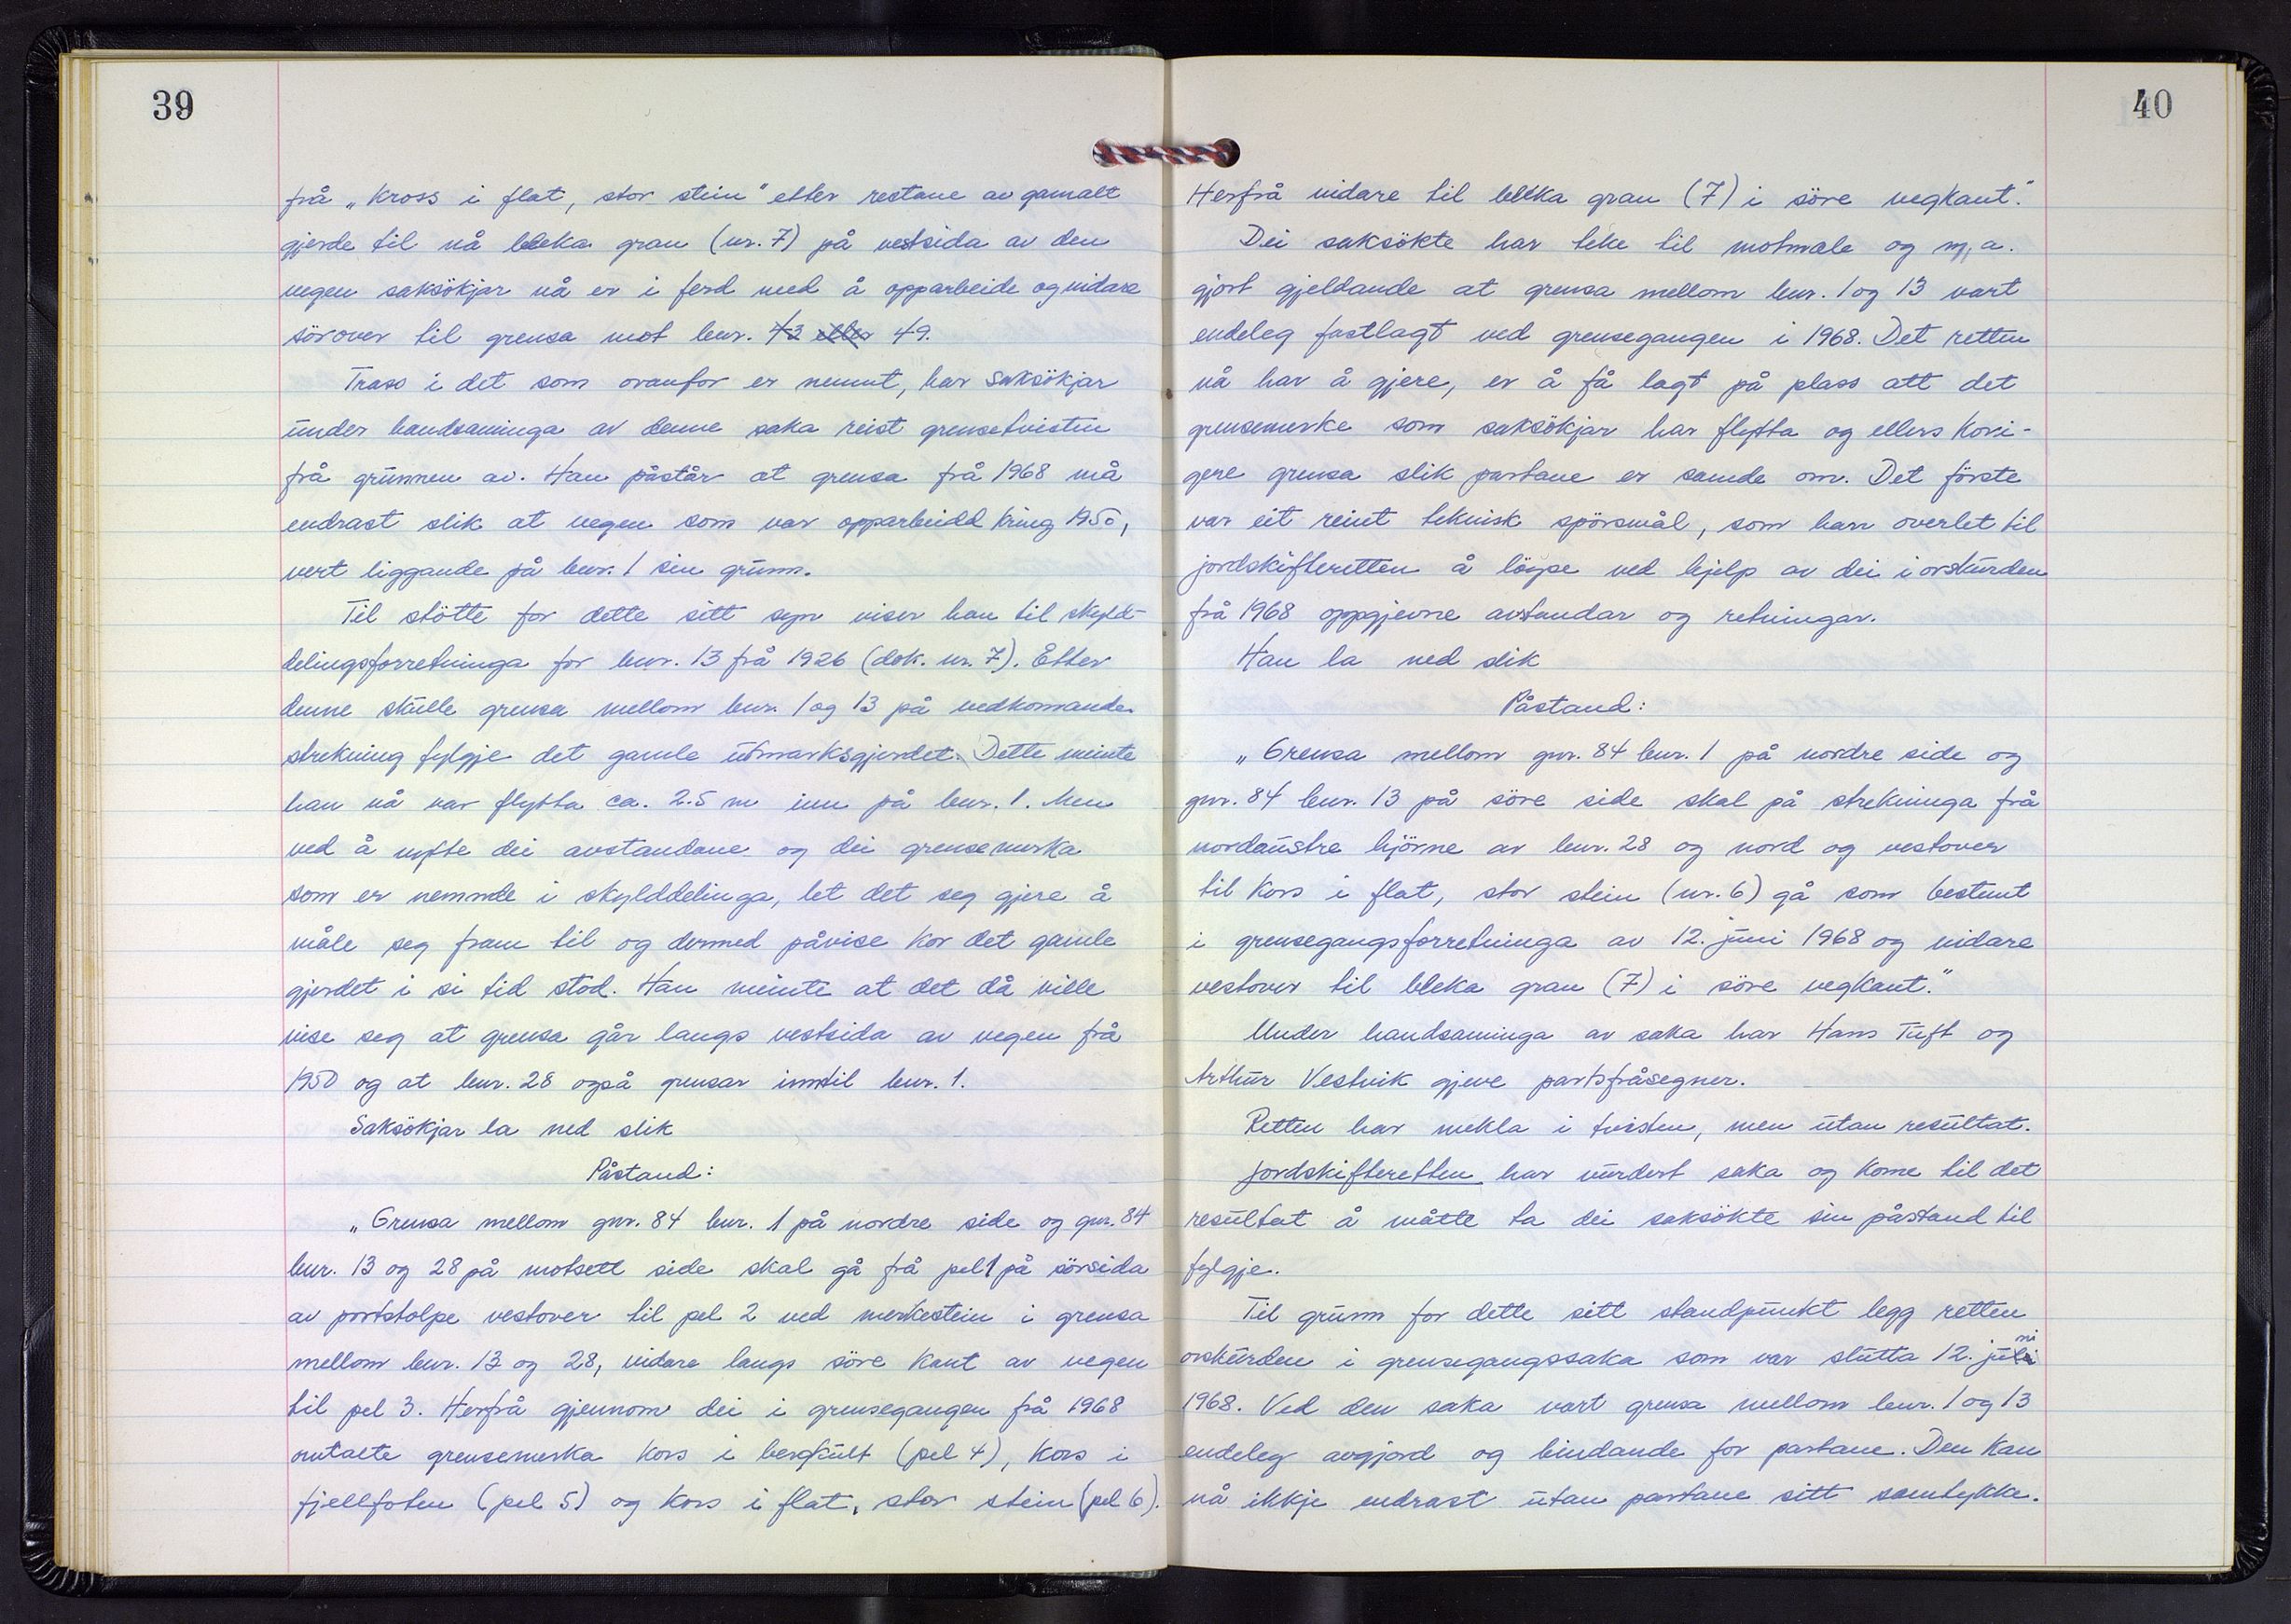 39
frå „Kross i flat, stor stein" etter restane av gamalt
gjerde til nå bleka gran (nr. 7) på vestsida av den
vegen saksökjar nå er i ferd med å opparbeide og vidare
sörover til grensa mot bnr. 43 eller 49.
Trass i det som ovanfor er nemnt, har saksökjar
under handsaminga av denne saka reist grensetvisten
frå grunnen av. Han påstår at grensa frå 1968 må
endrast slik at vegen som var opparbeidd kring 1950,
vert liggande på bnr. 1 sin grunn.
Til stötte for dette sitt syn viser han til skyld-
delingsforretninga for bnr. 13 frå 1926 (dok. nr. 7). Etter
denne skulle grensa mellom bnr. 1 og 13 på vedkomande
strekning fylgje det gamle utmarksgjerdet. Dette meinte
han nå var flytta ca. 2.5 m inn på bnr. 1. Men
ved å nytte dei avstandane og dei grensemerka
som er nemnde i skylddelinga, let det seg gjere å
måle seg fram til og dermed påvise kor det gamle
gjerdet i si tid stod. Han meinte at det då ville
vise seg at grensa går langs vestsida av vegen frå
1950 og at bnr. 28 også grensar inntil bnr. 1.
Saksökjar la ned slik
Påstand:
„Grensa mellom gnr. 84 bnr. 1 på nordre side og gnr. 84
bnr. 13 og 28 på motsett side skal gå frå pel 1 på sörsida
av portstolpe vestover til pel 2 ved merkestein i grensa
mellom bnr. 13 og 28, vidare langs söre kant av vegen
til pel 3. Herfrå gjennom dei i grensegangen frå 1968
omtalte grensemerka kors i bergkult (pel 4), kors i
fjellfoten (pel 5) og kors i flat, stor stein (pel 6).
40
Herfrå vidare til bleka gran (7) i söre vegkant."
Dei saksökte har teke til motmæle og m.a.
gjort gjeldande at grensa mellom bnr. 1 og 13 vart
endeleg fastlagt ved grensegangen i 1968. Det retten
nå har å gjere, er å få lagt på plass att det
grensemerke som saksökjar har flytta og ellers kori-
gere grensa slik partane er samde om. Det förste
var eit reint teknisk spörsmål, som han overlet til
jordskifteretten å löyse ved hjelp av dei i orskurden
frå 1968 oppgjevne avstandar og retningar.
Han la ned slik
Påstand:
„Grensa mellom gnr. 84 bnr. 1 på nordre side og
gnr. 84 bnr. 13 på söre side skal på strekninga frå
nordaustre hjörne av bnr. 28 og nord og vestover
til kors i flat, stor stein (nr. 6) gå som bestemt
i grensegangsforretninga av 12. juni 1968 og vidare
vestover til bleka gran (7) i söre vegkant."
Under handsaminga av saka har Hans Tuft og
Arthur Vestvik gjeve partsfråsegner.
Retten har mekla i tvisten, men utan resultat.
Jordskifteretten har vurdert saka og kome til det
resultat å måtte ta dei saksökte sin påstand til
fylgje.
Til grunn for dette sitt standpunkt legg retten
orskurden i grensegangssaka som var slutta 12. juni
1968. Ved den saka vart grensa mellom bnr. 1 og 13
endeleg avgjord og bindande for partane. Den kan
nå ikkje endrast utan partane sitt samtykke.